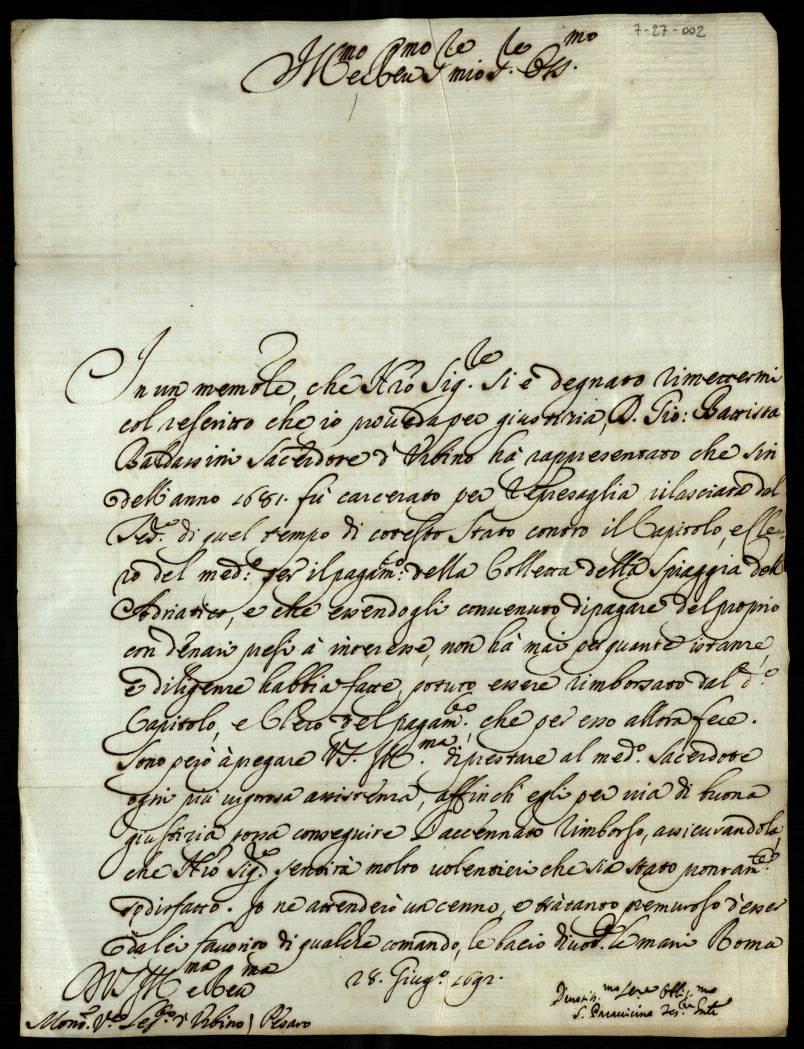 7-27-002
Ill.mo e R.mo Sig.re mio Sig.re Oss.mo
In un mem.le, che N̄ro Sig.re si è degnato rimettermi
col rescritto che io proveda per giustizia, D. Gio: Battista
Baldassini Sacerdote d'Urbino hà rappresentato che sin
dell'anno 1681. fù carcerato per represaglia rilasciata dal
Tes.re di quel tempo di cotesto Stato contro il Capitolo, e Cle-
ro del med.o per il pagam.to della Colletta della Spiaggia dell'
Adriatico, e che essendogli convenuto di pagare del proprio
con denari presi à interesse, non hà mai per quante istanze,
e diligenze habbia fatte, potuto essere rimborsato dal d.o
Capitolo, e Clero del pagam.to, che per esso allora fece.
Sono però à pregare VS. Ill.ma di prestare al med.o Sacerdote
ogni più vigorosa assistenza, affinch'egli per via di buona
giustizia possa conseguire l'accennato rimborso, assicurandola,
che N̄ro Sig.re sentirà molto volentieri che sia stato prontam.te
sodisfatto. Io ne attenderò un cenno, e frà tanto premuroso d'esser
da lei favorito di qualche comando, le bacio divot.e le mani Roma
28. Giug.o 1692.
D VS Ill.ma e R.ma
Divotis.mo Ser.e Obblig.mo
Mons.r V.e Leg.to d'Urbino / Pesaro